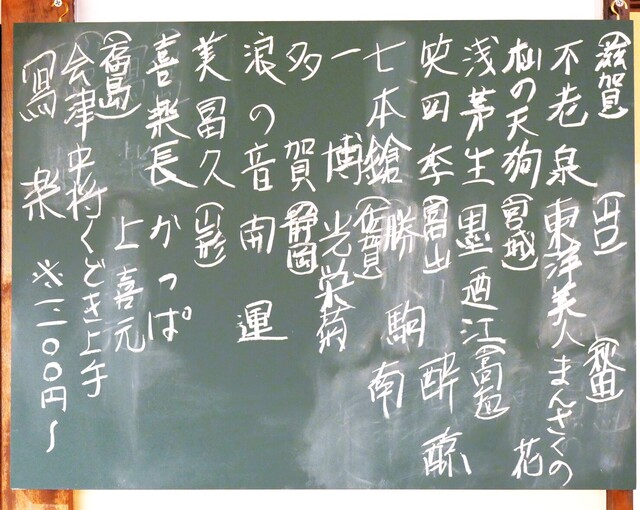 (滋賀)
不老泉
杣の天狗
浅茅生
笑四季
七本鎗
一博
多賀
浪の音
美冨久
喜楽長
(福島)
会津中将
寫楽
(山口)
東洋美人
(宮城)
墨廼江
(富山)
勝駒
(佐賀)
光栄菊
(静岡)
開運
(山形)
かっぱ
上喜元
くどき上手
(秋田)
まんさくの
花
(高知)
酔鯨
南